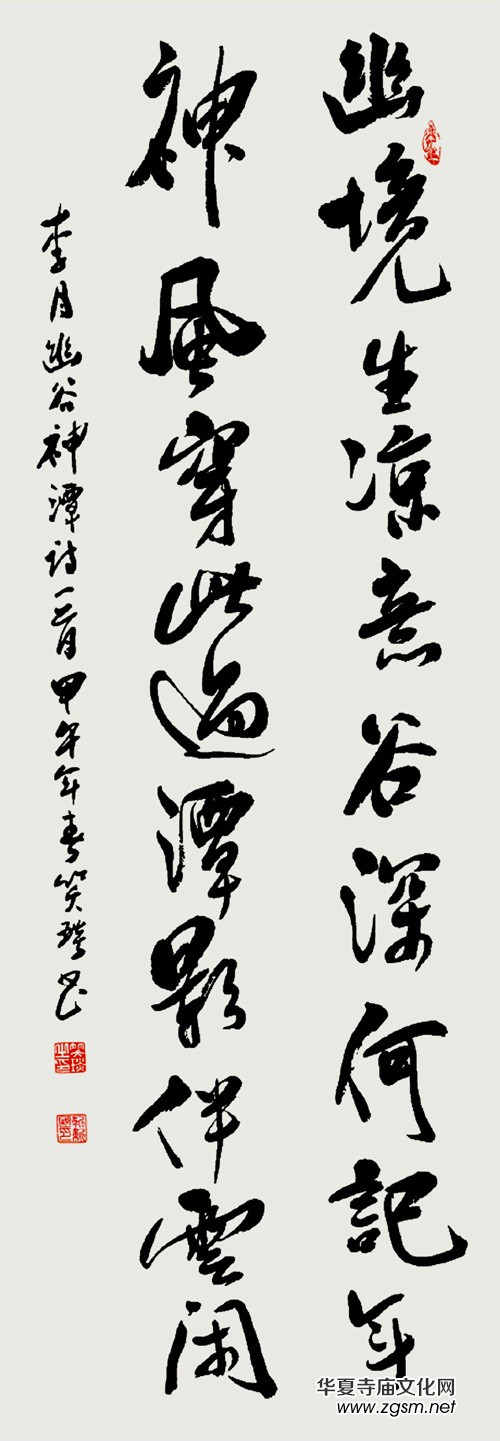 幽境生凉意谷深何記年
神風穿此過潭影伴雲闲
李月幽谷神潭诗一首甲午年春笑琰书
华夏寺庙文化网
www.zgsm.net